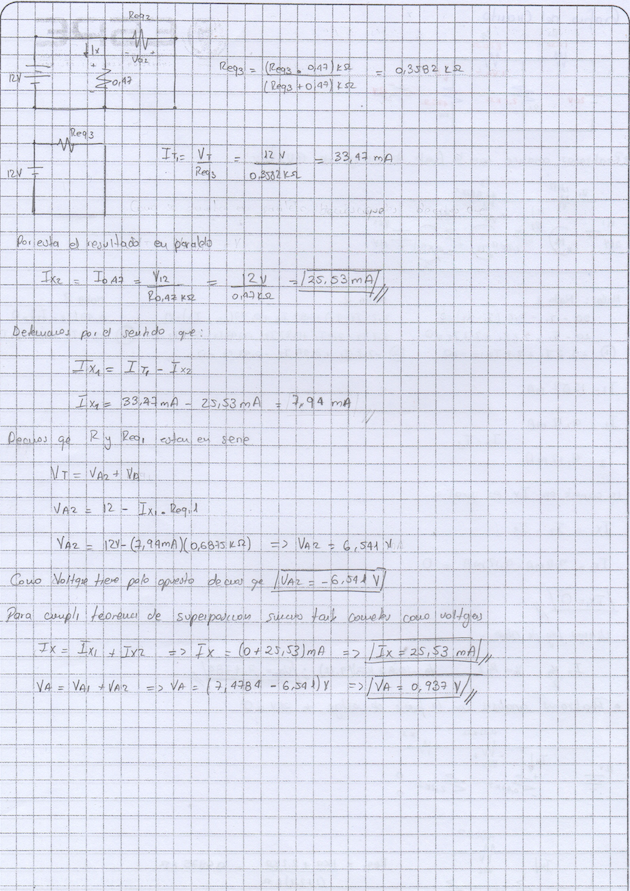 Req2
Ix
+
VA2
12V
0,47
Req3 = (Req3 . 0,47) kΩ / (Req3 + 0,47) kΩ = 0,3582 kΩ
Req3
12V
IT1 = VT / Req3 = 12 V / 0,3582 kΩ = 33,47 mA
Por esta el resultado en paralelo
Ix2 = I0,47 = V12 / R0,47 kΩ = 12 V / 0,47 kΩ = 25,53 mA
por el sentido que:
Ix1 = IT1 - Ix2
Ix1 = 33,47 mA - 25,53 mA = 7,94 mA
R y Req1 estan en serie
VT = VA2 + VA
VA2 = 12 - Ix1 . Req.1
VA2 = 12V - (7,94mA)(0,6875kΩ) => VA2 = 6,541 V
Como Voltaje tiene polo opuesto VA2 = -6,541 V
Para teorema de superposicion como
Ix = Ix1 + Ix2 => Ix = (0 + 25,53) mA => Ix = 25,53 mA
VA = VA1 + VA2 => VA = (7,4784 - 6,541) V => VA = 0,937 V